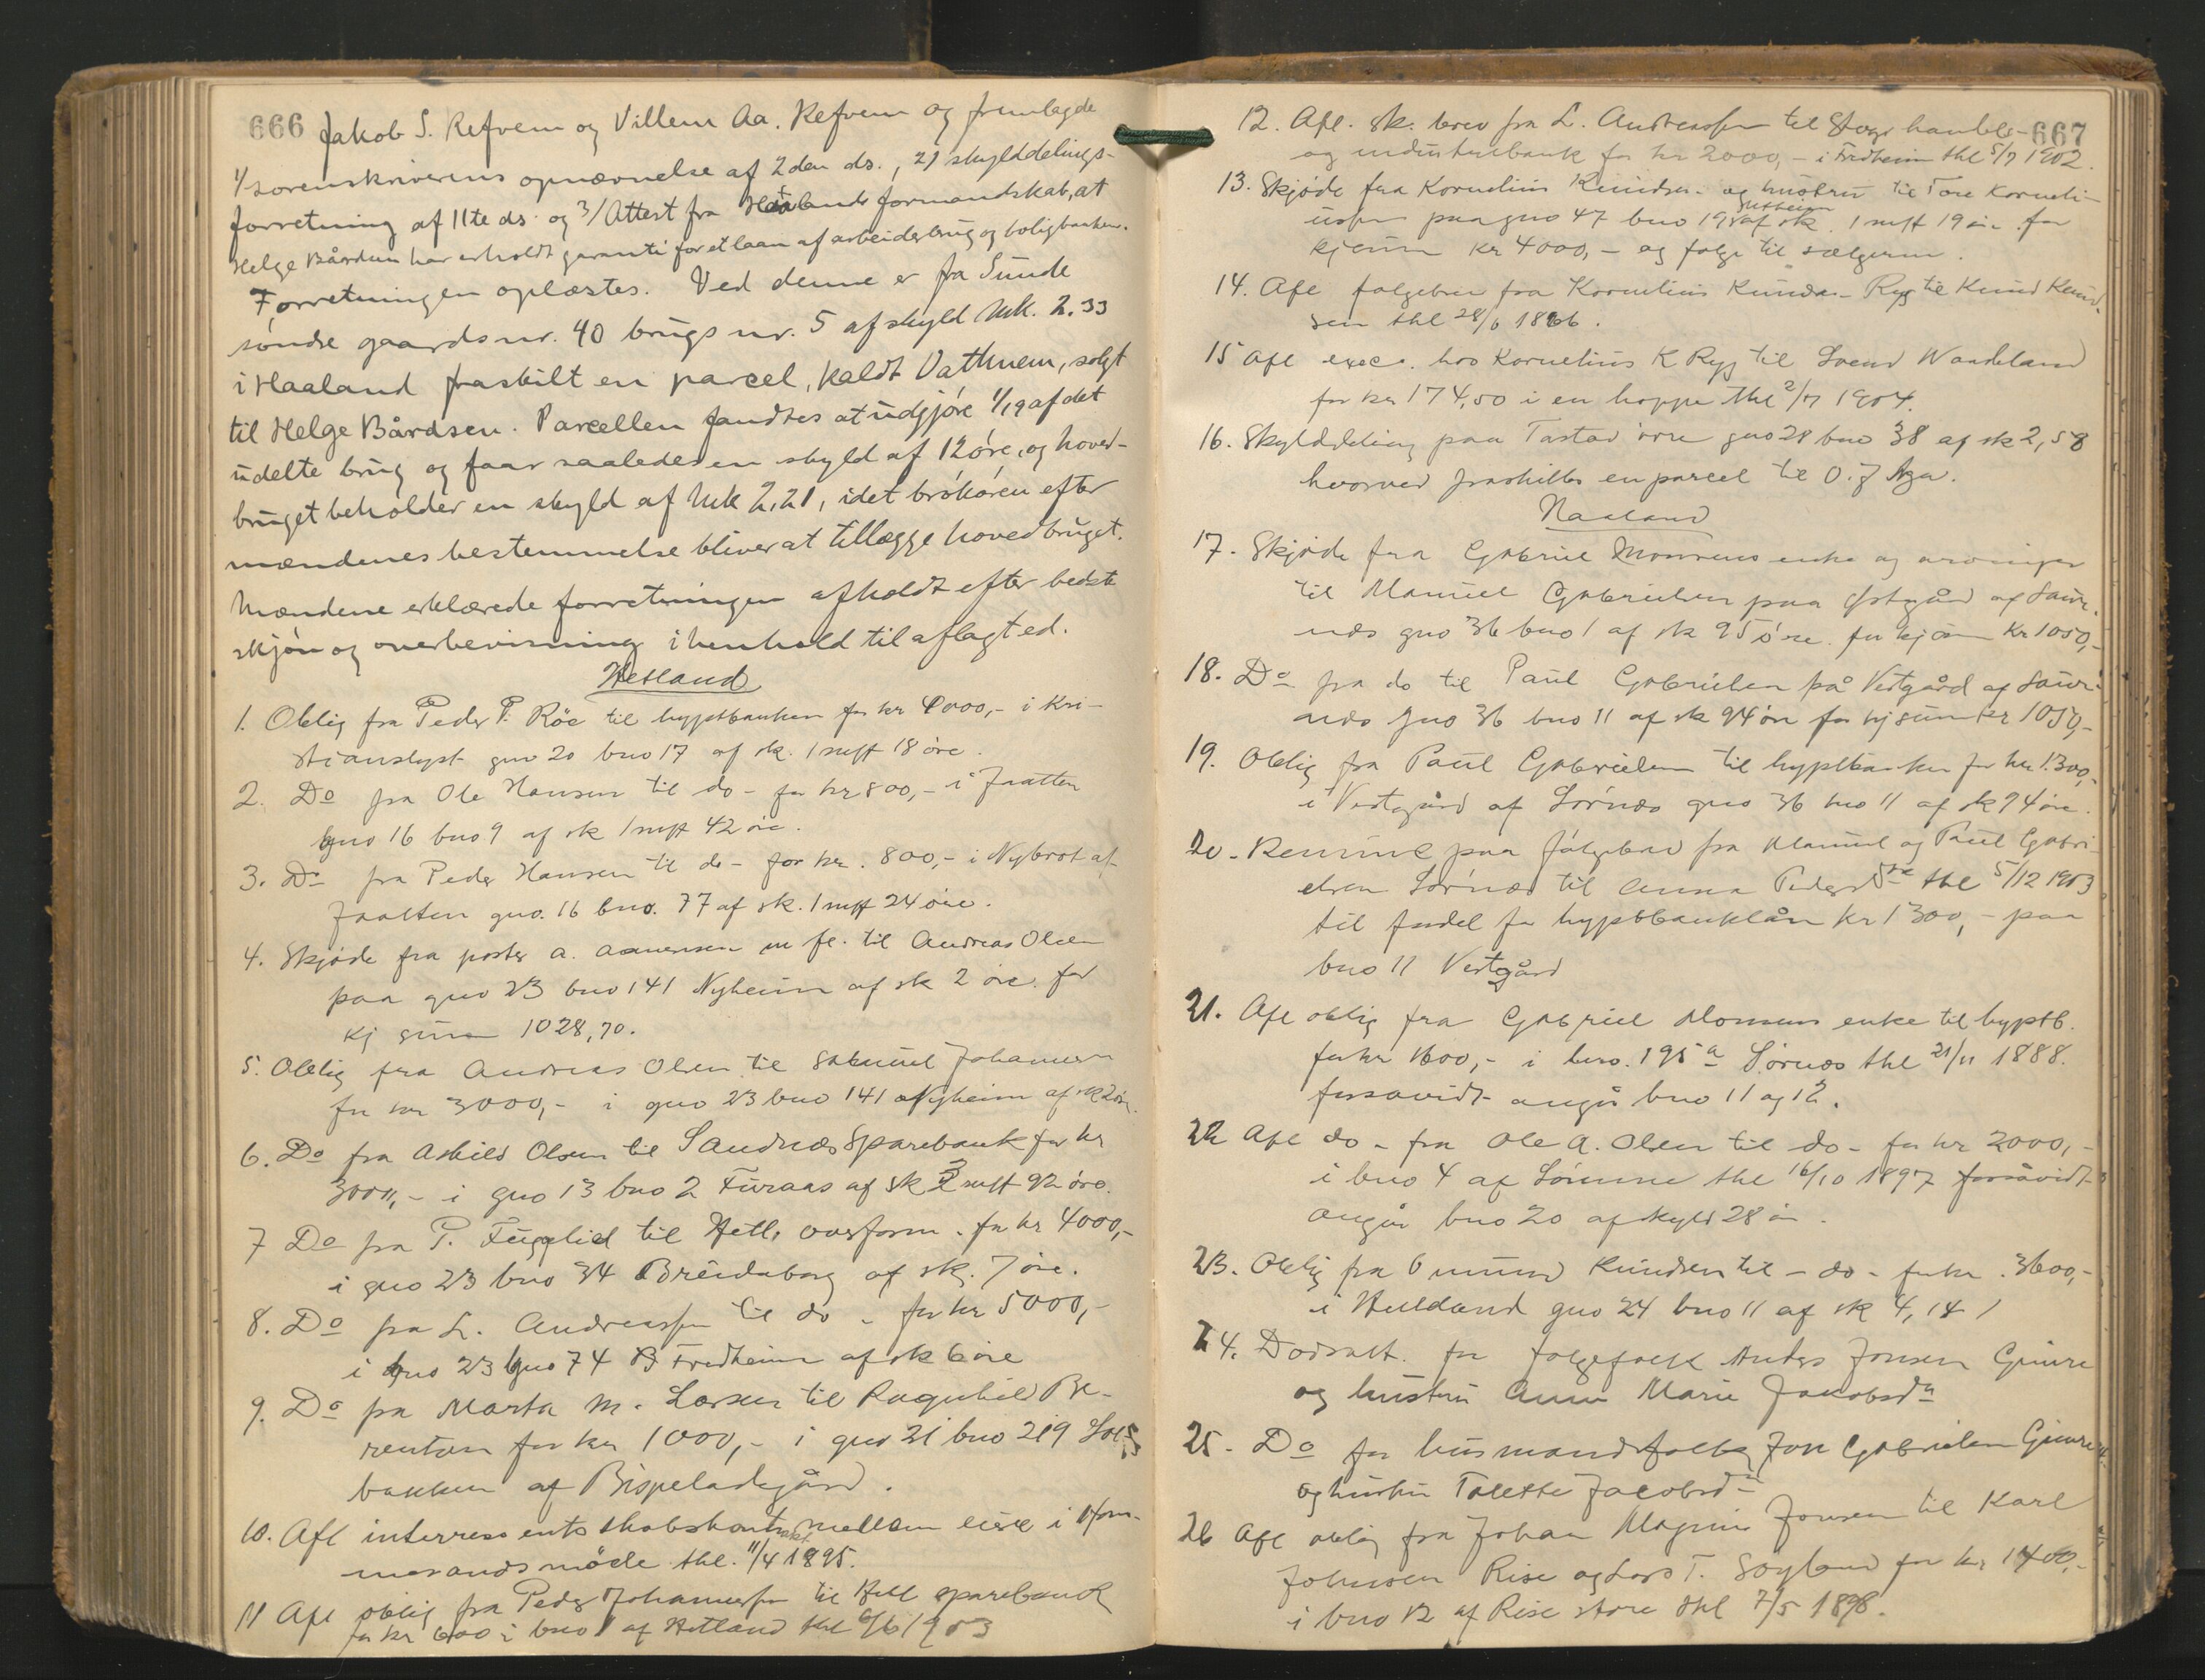 666 Jakob S. Refvem og Villem Aa. Refvem og fremlagde
1/ sorenskriverens opnævnelse af 2den ds., 2/ skylddelings-
forretning af 11te ds. og 3/ Attest fra Haalands formandskab, at
Helge Bårdsen har erholdt garanti for et laan af arbeiderbrug og boligbanken.
Forretningen oplæstes. Ved denne er fra Sunde
søndre gaardsnr. 40 brugsnr. 5 af skyld Mk. 2.33
i Haaland fraskilt en parcel, kaldt Vathnem, solgt
til Helge Bårdsen. Parcellen fandtes at udgjøre 1/19 af det
udelte brug og faar saaledes en skyld af 12 øre, og hoved-
bruget beholder en skyld af Mk 2,21, idet brøkøren efter
mændenes bestemmelse bliver at tillægge hovedbruget.
Mændene erklærede forretningen afholdt efter bedste
skjøn og overbevisning i henhold til aflagt ed.
Hetland
1. Oblig fra Peder P. Röe til hyptbanken for kr 4000,- i Kri-
stianslyst gno 20 bno 17 af sk. 1 mft 18 øre.
2. Do fra Ole Hansen til do - for kr 800,- i Jaatten
gno 16 bno 9 af sk 1 mft 42 øre.
3. Do fra Peder Hansen til do - for kr. 800,- i Nybrot af
Jaatten gno. 16 bno. 77 af sk. 1 mft 24 øre.
4. Skjøde fra a. Aanensen m fl. til Andreas Olsen
paa gno 23 bno 141 Nyheim af sk 2 øre for
kj sum 1028,70.
5. Oblig fra Andreas Olsen til Samuel Johannesen
for kr 3000,- i gno 23 bno 141 Nyheim af sk 2 øre.
6. Do fra Askild Olsen til Sandnæs Sparebank for kr
3000,- i gno 13 bno 2 Furaas af sk 3 mft 92 øre.
7 Do fra P. Fuglied til Hetl. overform. for kr 4000,-
i gno 23 bno 34 Breidaborg af sk. 7 øre.
8. Do fra L. Andreassen til do - for kr 5000,-
i gno 23 bno 74 Fredheim af sk 6 øre
9. Do fra Marta M. Larsen til Ragnhild Be-
rentsen for kr 1000,- i gno 21 bno 219 Sol-
bakken af Bispeladegård.
10. Afl interessentskabskontrakt mellem eiere i
thl. 11/4 1895.
11 Afl oblig fra Peder Johannessen til Hetl sparebank
for kr 600 i bno 1 af Hetland thl 6/6 1903
12. Afl. sk. brev fra L. Andreassen til Stvgr handels- 667
og industribank for kr 2000,- i Fredheim thl 5/7 1902.
13. Skjøde fra Kornelius Knudsen og hustru til Tore Korneli-
ussen paa gno 47 bno 19 af sk. 1 mft 19 øre for
kjsum kr 4000,- og folge til sælgeren.
14. Afl folgebrev fra Kornelius Knudsen Ryg til Knud Knud-
sen thl 28/6 1866.
15 Afl exec. hos Kornelius K Ryg til Svend Waadeland
for kr 174,50 i en hoppe thl 2/7 1904.
16. Skylddeling paa Tastad øvre gno 28 bno 38 af sk 2,58
hvorved fraskilles en parcel til O. J Aga.
Haaland
17. Skjøde fra Gabriel Monsens enke og arvinger
til Manuel Gabrielsen paa Østgård af Sør-
næs gno 36 bno 1 af sk 95 øre for kjøsum Kr 1050,-
18. Do fra do til Paul Gabrielsen på Vestgård af Sør-
næs gno 36 bno 11 af sk 94 øre for kjsum kr 1050,-
19. Oblig fra Paul Gabrielsen til hyptbanken for kr 1300,-
i Vestgård af Sørnæs gno 36 bno 11 af sk 94 øre.
20. paa følgebrev fra Manuel og Paul Gabri-
elsen Sørnæs til Anna Pedersdtr thl 5/12 1903
til fordel for hyptbanklån kr 1300,- paa
bno 11 Vestgård
21. Afl oblig fra Gabriel Monsens enke til hyptb.
for kr 1600,- i lno. 195 a Sørnæs thl 21/11 1888.
forsavidt angår bno 11 og 12.
22 Afl do - fra Ole A. Olsen til do - for kr 2000,-
i bno 4 af thl 16/10 1897 forsåvidt
angår bno 20 af skyld 28 øre.
23. Oblig fra Omund Knudsen til - do - for kr. 3600,-
i gno 24 bno 11 af sk 4,14
24. Dødsatt. for folgefolk Anders Jonsen Gimre
og hustru Anne Marie Jakobsdtr
25. Do for husmandsfolk Jon Gabrielsen Gimre
og hustru Talette Jacobsdtr
26 Afl oblig fra Johan Magnus Jonsen til Karl
Johnsen Rise og Lars T. Søyland for kr 1400,-
i bno 12 af Rise store thl 7/5 1898.